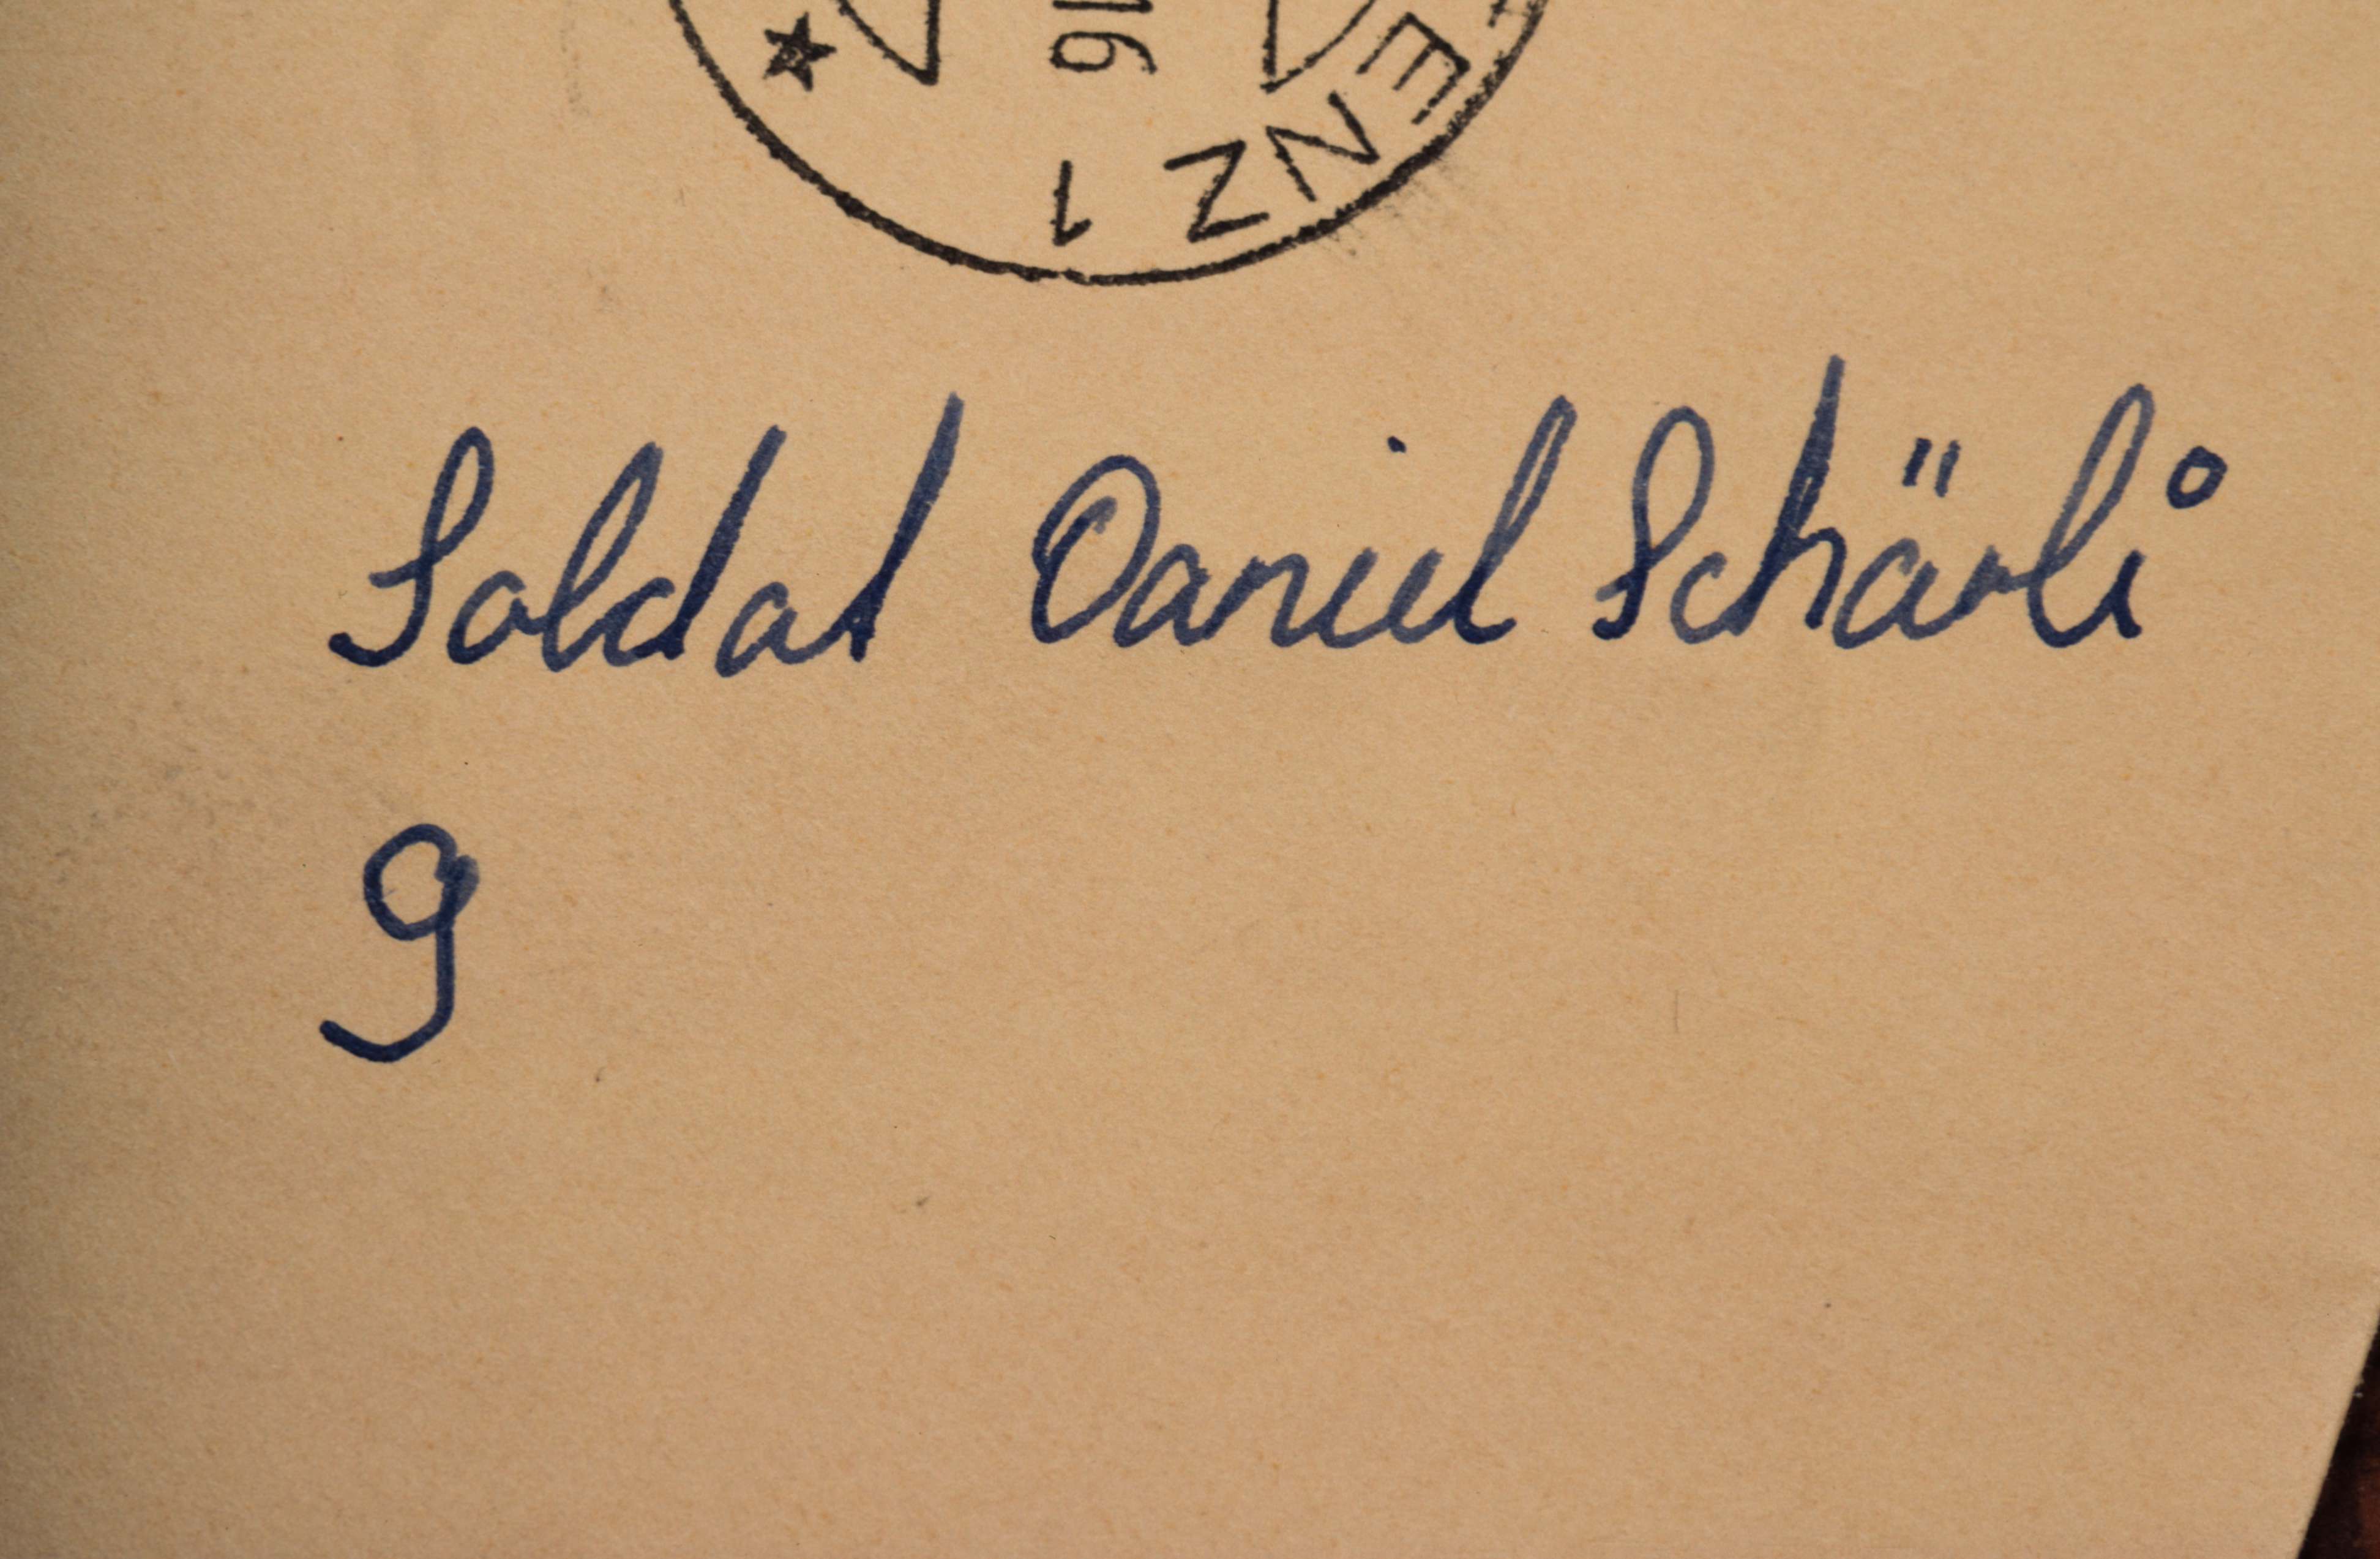 16
ENZ 1
Soldat Daniel Schärli
9